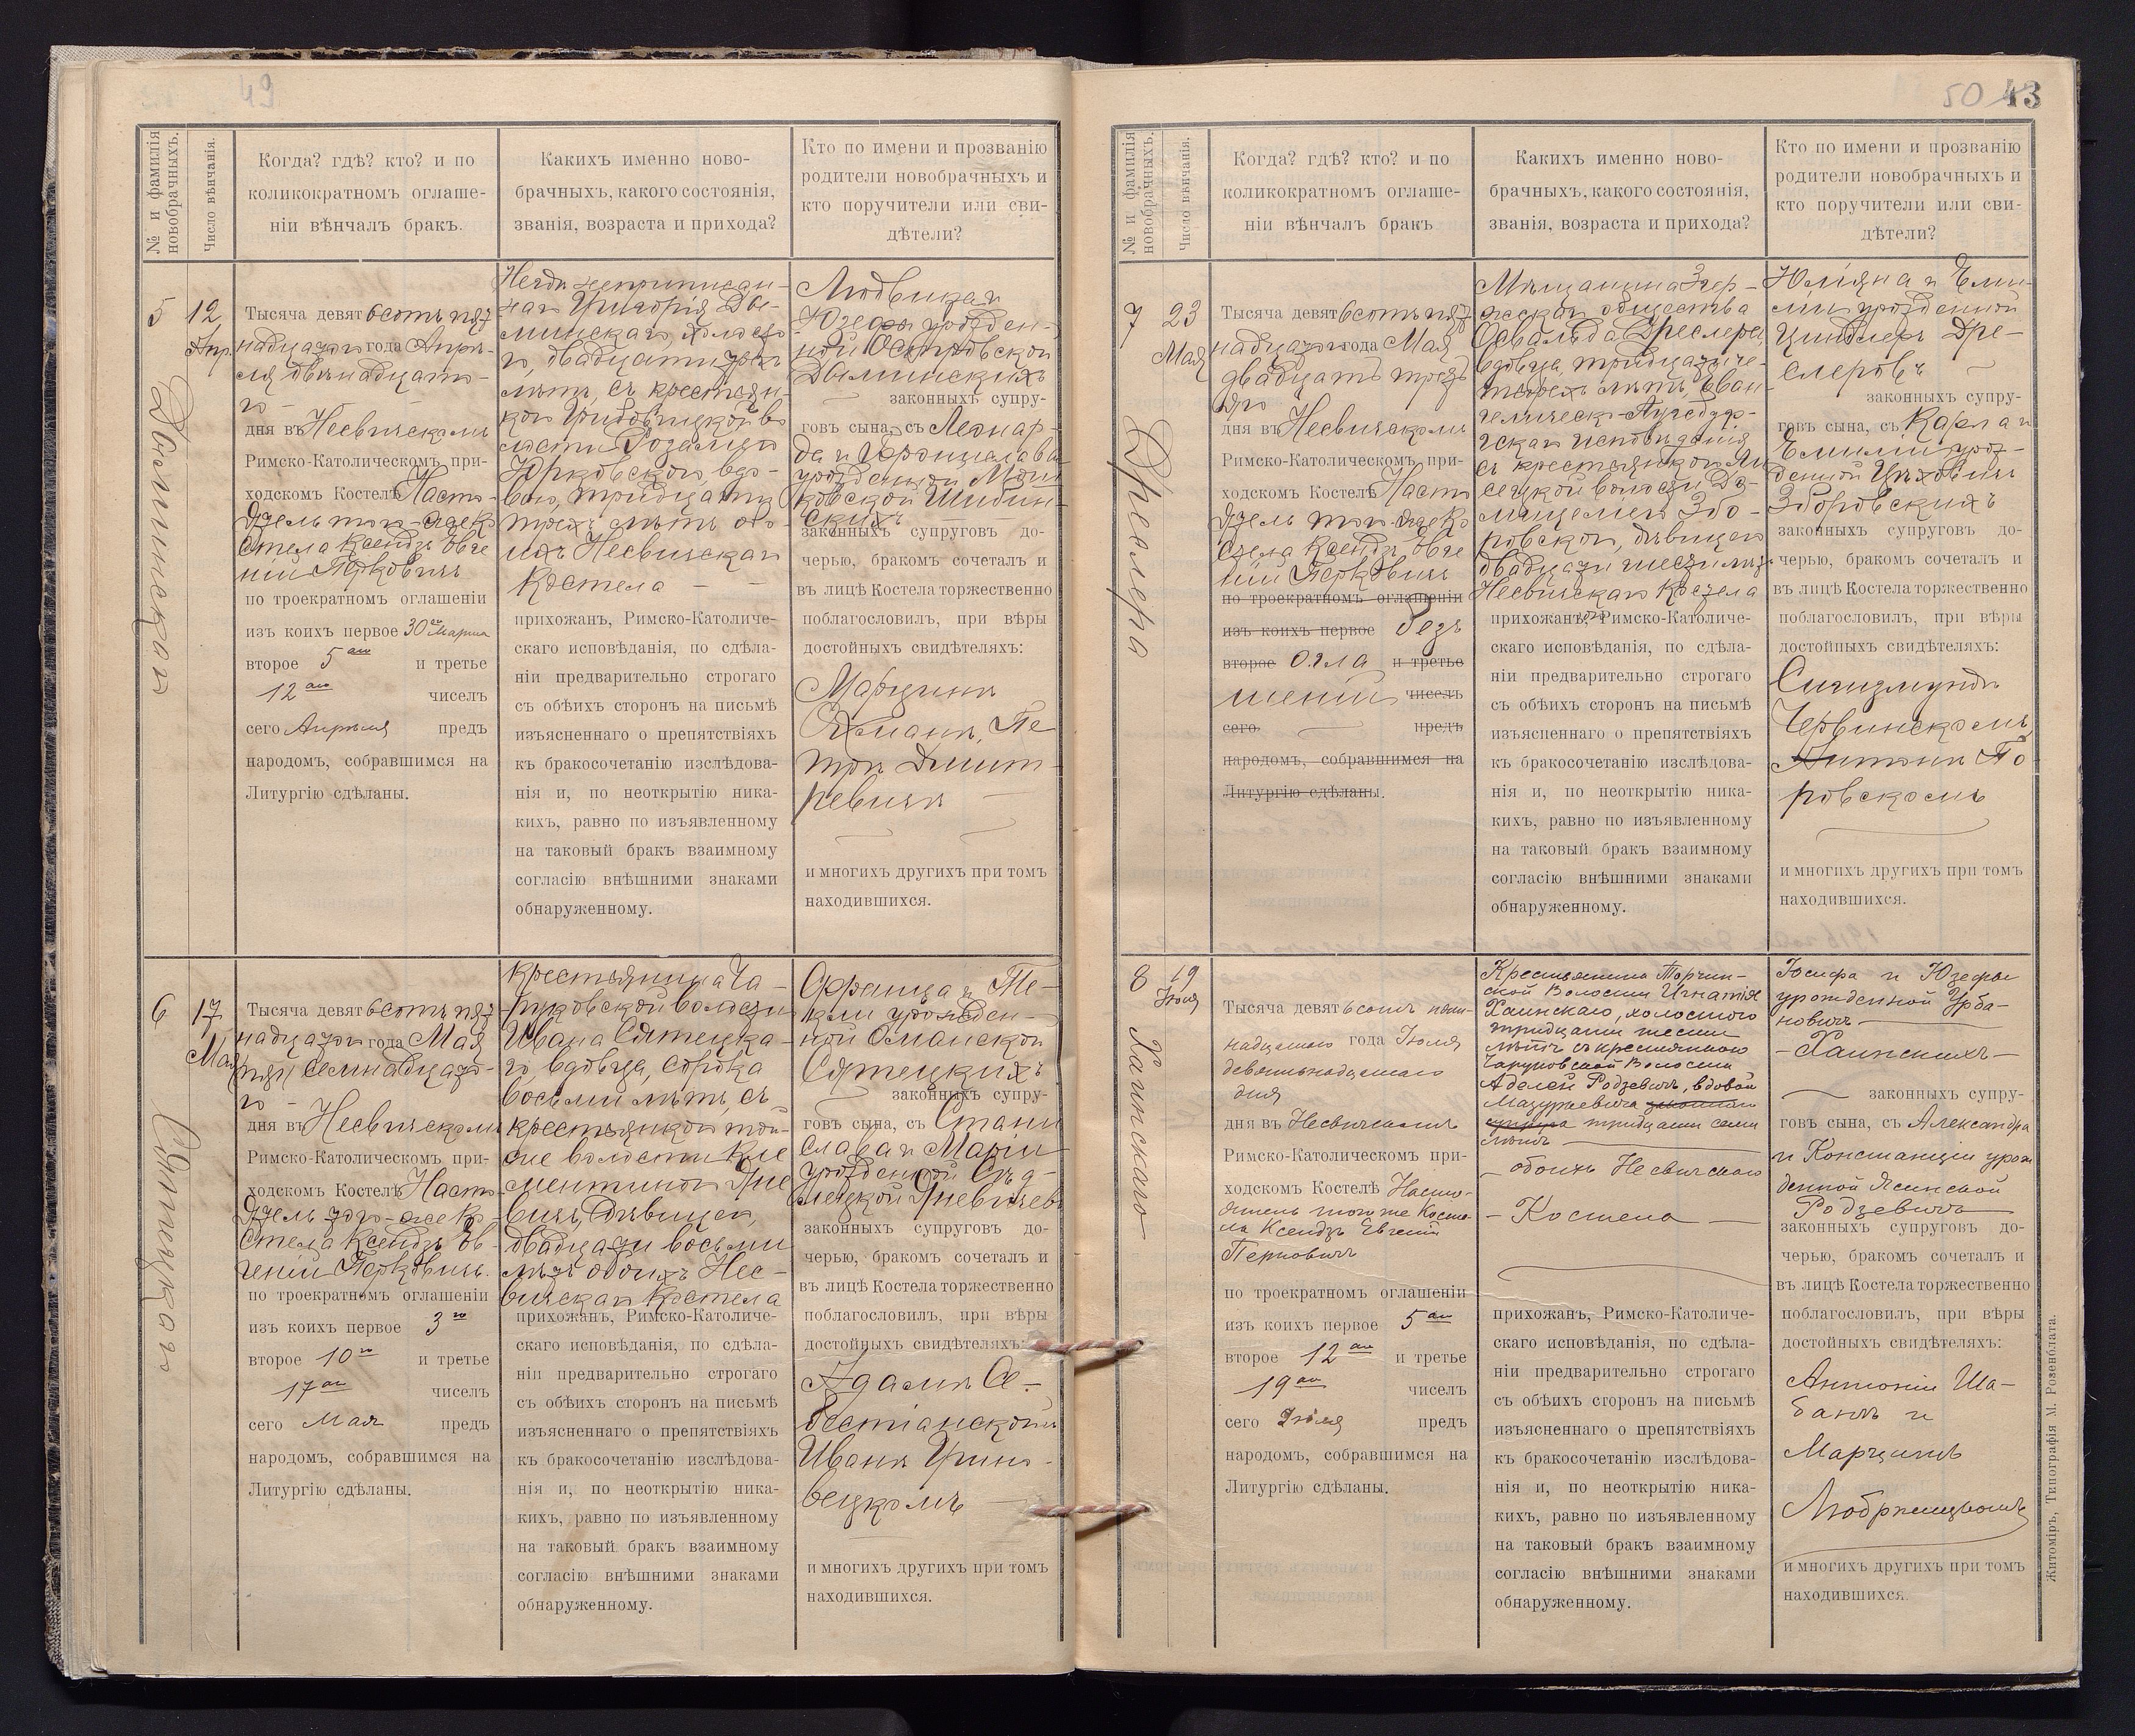 49
№ и фамилія новобрачныхъ.
Число вѣнчанія.
Когда? гдѣ? кто? и по
коликократномъ оглаше-
ніи вѣнчалъ бракъ.
Какихъ именно ново-
брачныхъ, какого состоянія,
званія, возраста и прихода?
Кто по имени и прозванію
родители новобрачныхъ и
кто поручители или сви-
дѣтели?
5
12
Апр.
Тысяча девятьсотъ пят
надцатаго года Апрѣ-
ля двѣнадцато-
го -
дня въ Несвичскомъ
Римско-Католическомъ при-
ходскомъ Костелѣ Насто-
ятель того-же Ко
стела Ксендзъ Евге
ній Перковичъ
по троекратномъ оглашеніи
изъ коихъ первое 30го Марта
второе 5аго и третье
12аго чиселъ
сего Апрѣля предъ
народомъ, собравшимся на
Литургію сдѣланы.
лѣтъ, съ крестьян-
вою, тридцати
трехъ лѣтъ обо-
ихъ Несвичскаго
Костела
прихожанъ, Римско-Католиче-
скаго исповѣданія, по сдѣла-
ніи предварительно строгаго
съ обѣихъ сторонъ на письмѣ
изъясненнаго о препятствіяхъ
къ бракосочетанію изслѣдова-
нія и, по неоткрытію ника-
кихъ, равно по изъявленному
на таковый бракъ взаимному
согласію внѣшними знаками
обнаруженному.
Людвика и
Юзефы урожден-
ной Островской
законныхъ супру-
говъ сына, съ Леонар-
законныхъ супруговъ до-
черью, бракомъ сочеталъ и
въ лицѣ Костела торжественно
поблагословилъ, при вѣры
достойныхъ свидѣтеляхъ:
Марцинъ
и многихъ другихъ при томъ
находившихся.
6
17
Мая
Тысяча девятьсотъ пят
надцатаго года Мая
семнадцато-
го -
дня въ Несвичскомъ
Римско-Католическомъ при-
ходскомъ Костелѣ Насто-
ятель того-же Ко-
стела Ксендзъ Ев-
геній Перковичъ
по троекратномъ оглашеніи
изъ коихъ первое 3го
второе 10го и третье
17аго чиселъ
сего Мая предъ
народомъ, собравшимся на
Литургію сдѣланы.
Крестьянина Ча-
руковской волости
Ивана Святецка-
го, вдовца, сорока
восьми лѣтъ, съ
крестьянкой той-
же волости Кле
ментиной Яне
вичъ, дѣвицей,
двадцати восьми
лѣтъ обоихъ Нес-
вичскаго Костела
прихожанъ, Римско-Католиче-
скаго исповѣданія, по сдѣла-
ніи предварительно строгаго
съ обѣихъ сторонъ на письмѣ
изъясненнаго о препятствіяхъ
къ бракосочетанію изслѣдова-
нія и, по неоткрытію ника-
кихъ, равно по изъявленному
на таковый бракъ взаимному
согласію внѣшними знаками
обнаруженному.
Франца и Те-
кли урожден-
ной Оманской
Святецкихъ
законныхъ супру-
говъ сына, съ Стани
слава и Маріи
урожденной
Яневичевъ
законныхъ супруговъ до-
черью, бракомъ сочеталъ и
въ лицѣ Костела торжественно
поблагословилъ, при вѣры
достойныхъ свидѣтеляхъ:
Адамъ Се-
бестіанскомъ
Иванъ Грино-
вецкомъ
и многихъ другихъ при томъ
находившихся.
50 43
№ и фамилія новобрачныхъ.
Число вѣнчанія.
Когда? гдѣ? кто? и по
коликократномъ оглаше-
ніи вѣнчалъ бракъ
Какихъ именно ново-
брачныхъ, какого состоянія,
званія, возраста и прихода?
Кто по имени и прозванію
родители новобрачныхъ и
кто поручители или сви-
дѣтели?
7
23
Мая
Дреслера
Тысяча девятьсотъ пят
надцатаго года Мая
двадцать треть
яго
дня въ Несвичскомъ
Римско-Католическомъ при-
ходскомъ Костелѣ Насто
ятель того-же Ко
стела Ксендзъ Евге
ній Перковичъ
по троекратномъ оглашеніи
изъ коихъ первое Безъ
второе огла и третье
шеній чиселъ
сего предъ
народомъ, собравшимся на
Литургію сдѣланы.
Мѣщанина Згер-
жскаго общества
Освальда Дреслера,
вдовца, тридцати че-
тырехъ лѣтъ, Еван
гелическо-Аугсбург-
скаго исповѣданія
съ крестьянкой
ровской, дѣвицей
двадцати шести лѣтъ
Несвичскаго Костела
прихожанъ, Римско-Католиче-
скаго исповѣданія, по сдѣла-
ніи предварительно строгаго
съ обѣихъ сторонъ на письмѣ
изъясненнаго о препятствіяхъ
къ бракосочетанію изслѣдова-
нія и, по неоткрытію ника-
кихъ, равно по изъявленному
на таковый бракъ взаимному
согласію внѣшними знаками
обнаруженному.
Юліяна и Еми-
ліи урожденной
Циммеръ Дре-
слеровъ
законныхъ супру-
говъ сына, съ Карла и
Емиліи урож-
денной Цѣховичъ
Зборовскихъ
законныхъ супруговъ до-
черью, бракомъ сочеталъ и
въ лицѣ Костела торжественно
поблагословилъ, при вѣры
достойныхъ свидѣтеляхъ:
Сигизмундъ
Червинскомъ
Антонъ По-
ровскомъ
и многихъ другихъ при томъ
находившихся.
8
19
Іюля
Хаинскаго
Тысяча девятьсотъ пят-
надцатаго года Іюля
девятьнадцатаго
дня
дня въ Несвичскомъ
Римско-Католическомъ при-
ходскомъ Костелѣ Насто-
ятель того же Косте-
ла Ксендзъ Евгеній
Перковичъ
по троекратномъ оглашеніи
изъ коихъ первое 5аго
второе 12аго и третье
19аго чиселъ
сего Іюля предъ
народомъ, собравшимся на
Литургію сдѣланы.
Крестьянина Торчин-
ской Волости Игнатія
Хаинскаго, холостого
тридцати шести
лѣтъ съ крестьянкою
Чаруковской Волости
Аделей Родзевичъ, вдовой
Мазуркевича
тридцати семи
лѣтъ
обоихъ Несвичскаго
Костела
прихожанъ, Римско-Католиче-
скаго исповѣданія, по сдѣла-
ніи предварительно строгаго
съ обѣихъ сторонъ на письмѣ
изъясненнаго о препятствіяхъ
къ бракосочетанію изслѣдова-
нія и, по неоткрытію ника-
кихъ, равно по изъявленному
на таковый бракъ взаимному
согласію внѣшними знаками
обнаруженному.
Іосифа и Юзефы
урожденной Урба-
новичъ
Хаинскихъ
законныхъ супру-
говъ сына, съ Александра
и Констанціи урож
денной Ясинской
Родзевичъ
законныхъ супруговъ до-
черью, бракомъ сочеталъ и
въ лицѣ Костела торжественно
поблагословилъ, при вѣры
достойныхъ свидѣтеляхъ:
Антоніи Ша-
банъ и
Марцинъ
и многихъ другихъ при томъ
находившихся.
Житоміръ, Типографія М. Розенблата.